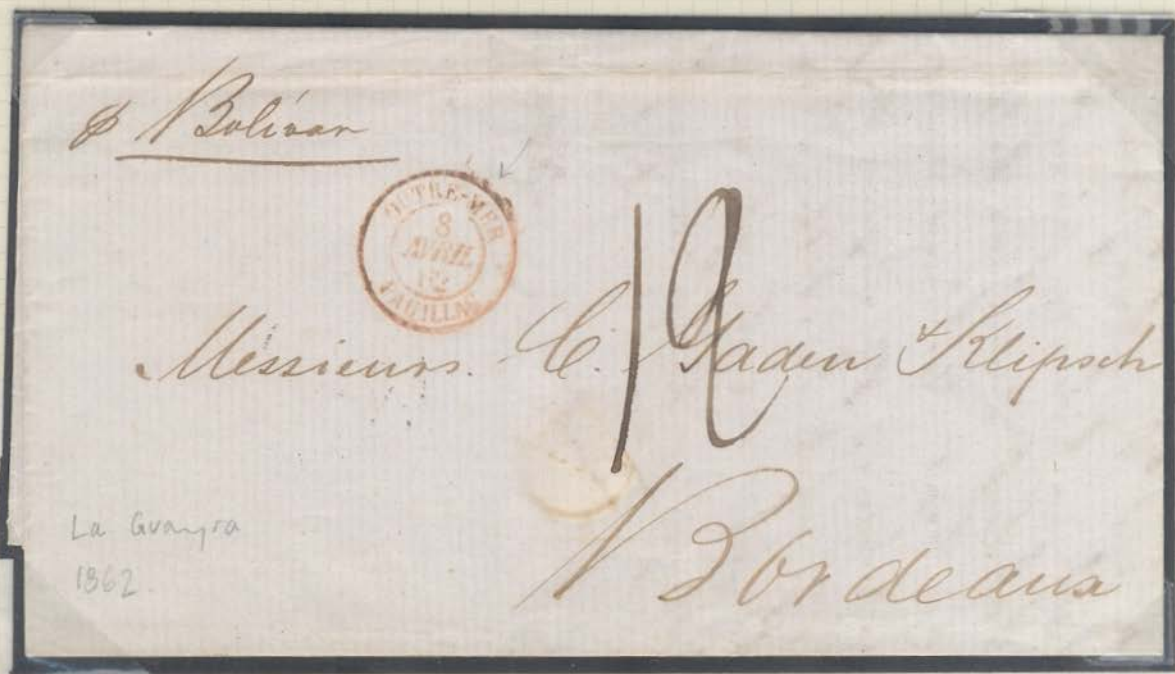 p Bolívar
OUTRE-MER
8
AVRIL
PAUILLAC
12
Messieurs. C. Gaden & Klipsch
Bordeaux
La Guayra
1862